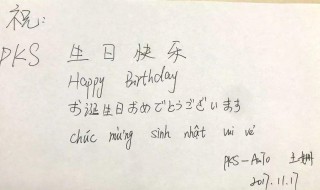 祝:
PKS 生日快乐
Happy Birthday
お誕生日おめでとうございます
chúc mừng sinh nhật vui vẻ
PKS-AUTO
2017.11.17